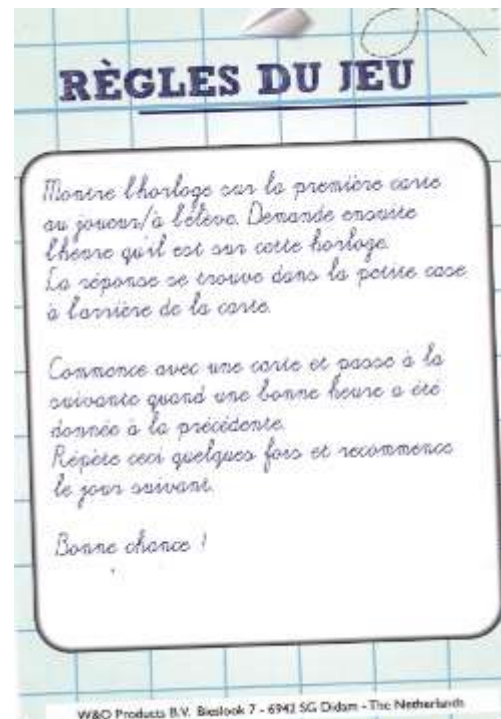 RÈGLES DU JEU
Montre l'horloge sur la première carte
au joueur/à l'élève. Demande ensuite
l'heure qu'il est sur cette horloge.
La réponse se trouve dans la petite case
à l'arrière de la carte.
Commence avec une carte et passe à la
suivante quand une bonne heure a été
donnée à la précédente.
Répète ceci quelques fois et recommence
le jour suivant.
Bonne chance !
W&O Products B.V. Bieslook 7 - 6942 SG Didam - The Netherlands